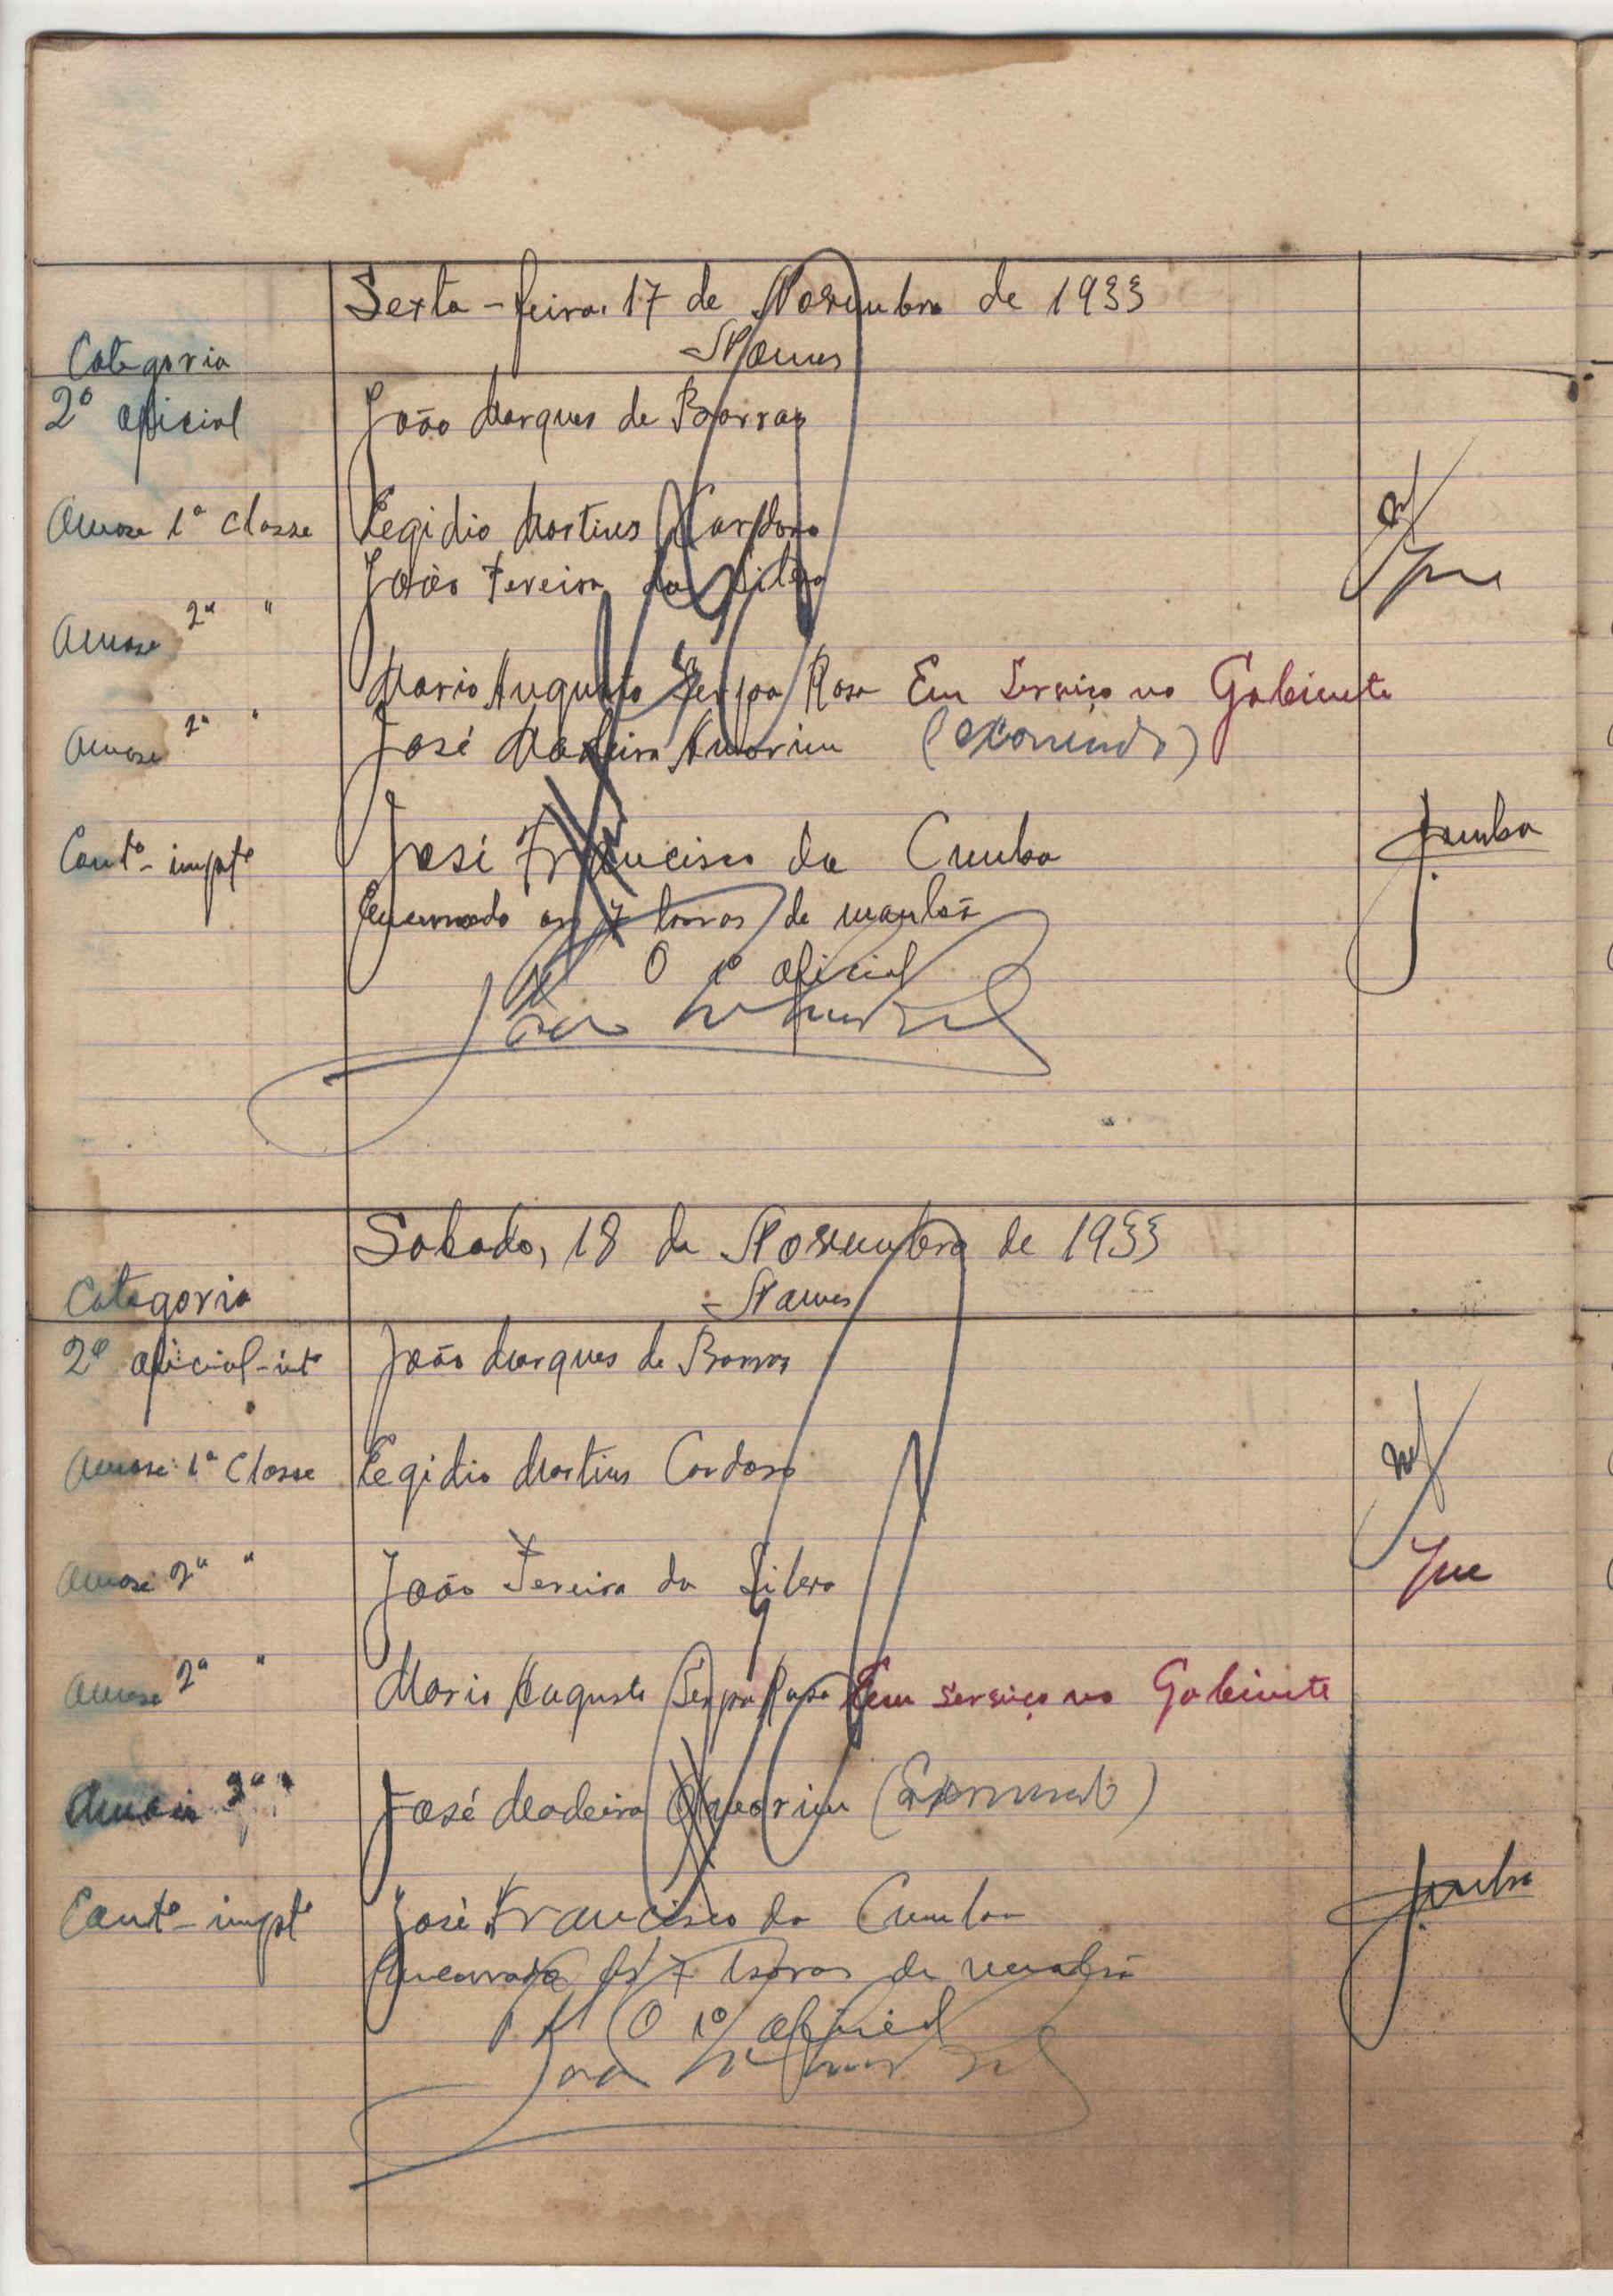 Sexta-feira, 17 de Novembro de 1933
Categoria Nomes
2º oficial João Marques de Barros
1ª classe Legidio Martins Cardoso
João Pereira da Silva
2ª "
Mario Augusto Serpa Rosa Em Serviço no Gabinete
2ª " José Madeira Amorim (exonerado)
Contº-impTº José Francisco da Cunha Jcunha
Encerrado as 7 horas de manhã
O 1º oficial
Sabado, 18 de Novembro de 1933
Categoria Nomes
2º oficial-intº João Marques de Barros
1ª Classe Legidio Martins Cardoso
2ª " João Pereira da Silva
2ª " Mario Augusto Serpa Rosa Em serviço no Gabinete
José Madeira Amorim (Exonerado)
Contº-impTº José Francisco da Cunha Jcunha
Encerrado ás 7 horas de manhã
O 1º oficial